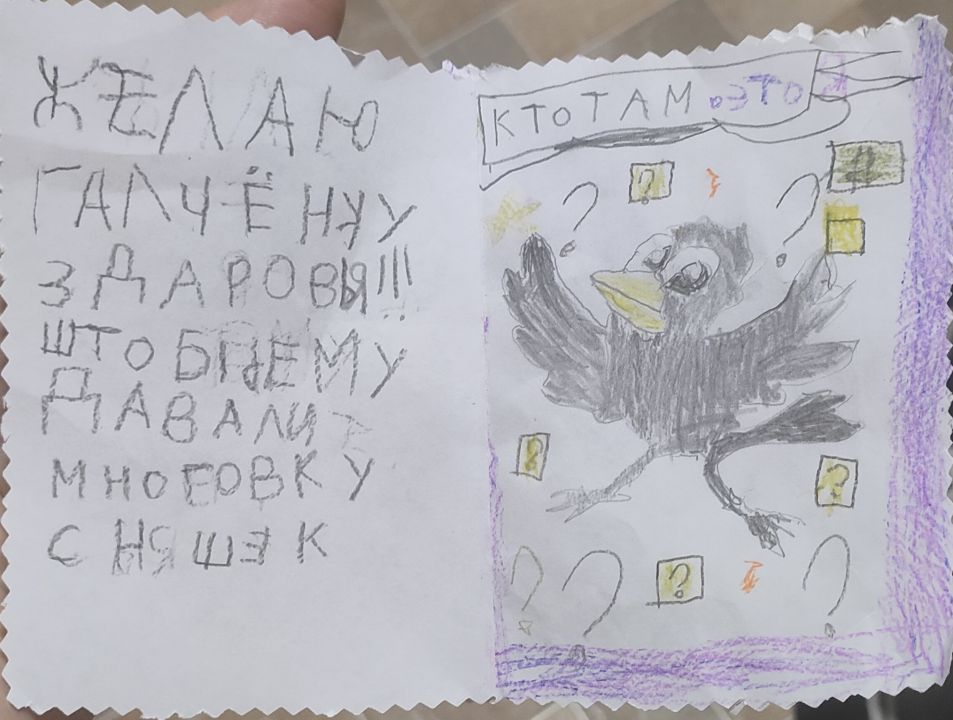 ЖЕЛАЮ
ГАЛЧЁНКУ
ЗДАРОВЬЯ!!!
ШТОБЫЕМУ
ДАВАЛИ
МНОГОВКУ
СНЯШЕК
КТОТАМ.ЭТО Я
? ? ?
? ?
? ? ? ?